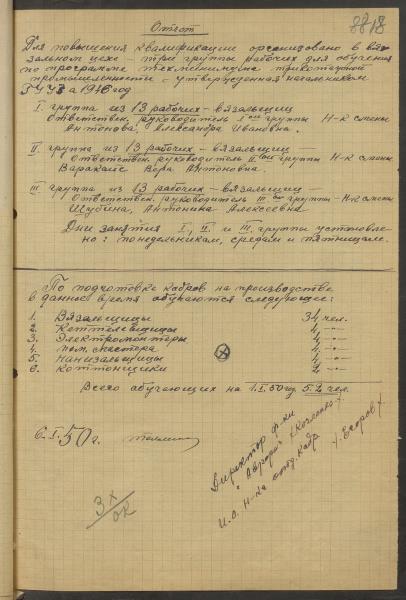 Отчет
Для повышения квалификации организовано в вя-
зальном цехе – три группы рабочих для обучения
по программе техминимума трикотажной
промышленности – утвержденная начальником
на 1948 год
I. группа из 13 рабочих – вязальщиц
Ответствен. руководитель I группы Н-к смены
Антонова, Александра Ивановна.
II. группа из 13 рабочих – вязальщиц —
Ответствен. руководитель II группы Н-к смены
Вера Антоновна.
III группа из 13 рабочих – вязальщиц —
Ответствен. руководитель III группы – Н-к смены
Шубина, Антонина Алексеевна
Дни занятия I, II и III группы установле-
но: понедельникам, средам и пятницам.
По подготовке кадров на производстве
в данное время обучаются следующие:
1. Вязальщицы 34 чел.
2. Кеттелевщицы 4 —"—
3. Электромонтеры 4 —"—
4. пом. мастера 4 —"—
5. Нанизальщицы 4 —"—
6. Коттонщики 2 —"—
Всего обучающих на 1.I.50 год 52 чел.
6.I.50 г.
Директор ф-ки
"Аврора"
И.О. Н-ка отд. Кадр /Егоров/
3х
ок